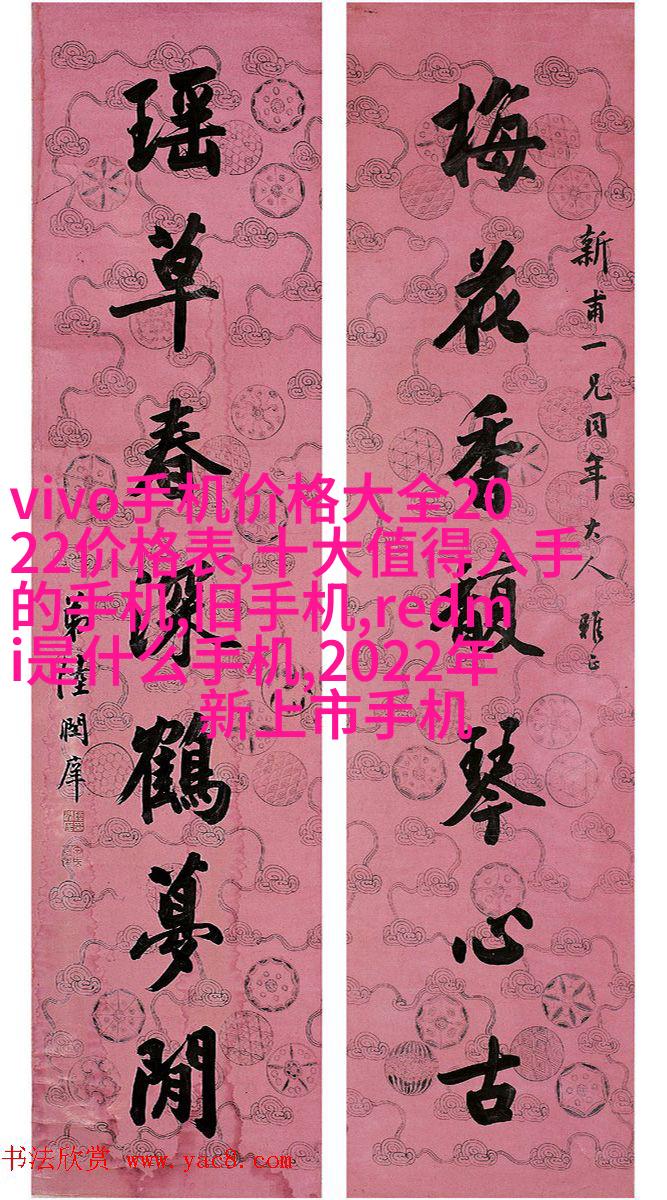 梅花香馥琴心古
新甫一兄同年大人 雅正
瑶草春深鶴夢閒
弟陸潤庠
vivo手机价格大全20
22价格表,十大值得入手
的手机,旧手机,redm
i是什么手机,2022年
新上市手机
书法欣赏 www.yac8.com